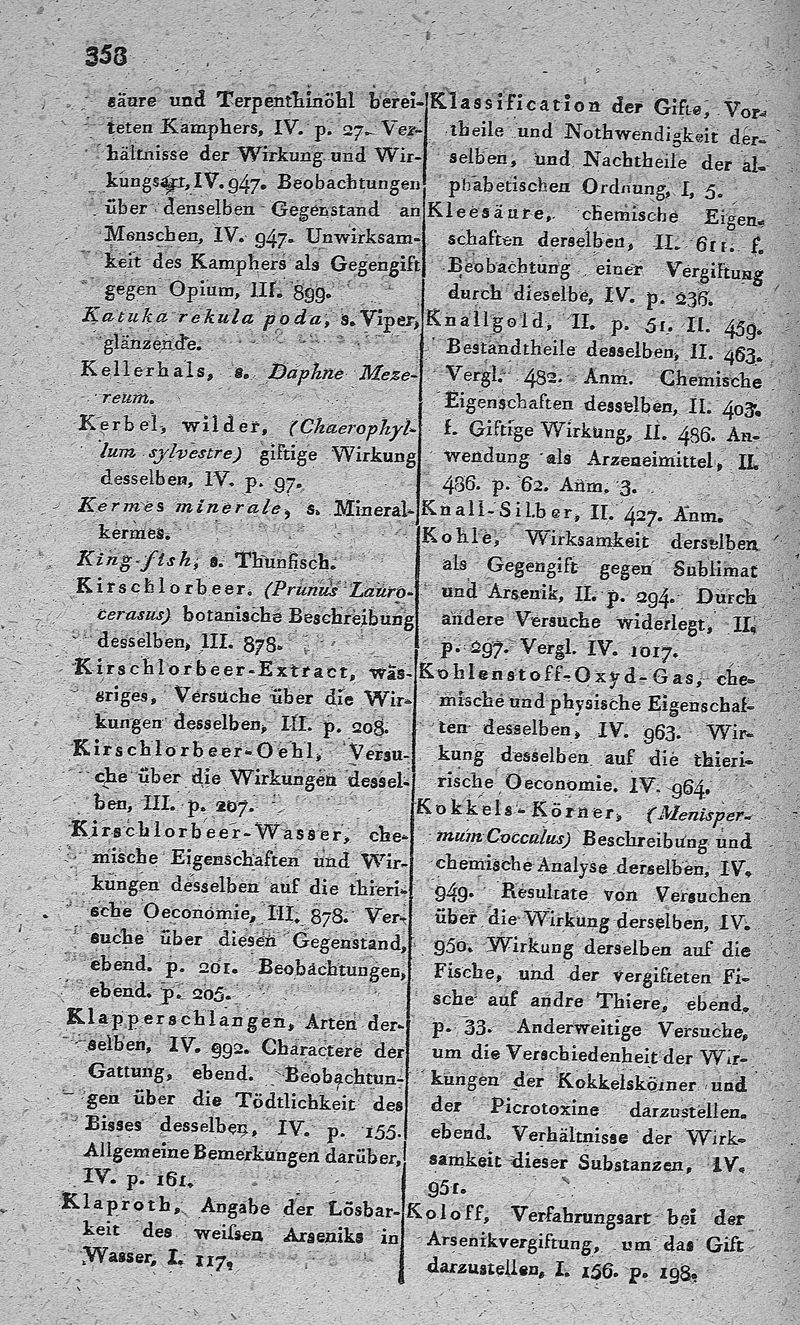 358
säure und Terpenthinöhl berei-
teten Kamphers, IV. p. 27. Ver-
hältnisse der Wirkung und Wir-
kungsart, IV. 947. Beobachtungen
über denselben Gegenstand an
Menschen, IV. 947. Unwirksam-
keit des Kamphers als Gegengift
gegen Opium, III. 899.
Katuka rekula poda, s. Viper,
glänzende.
Kellerhals, s. Daphne Meze-
reum.
Kerbel, wilder, (Chaerophyl-
lum sylvestre) giftige Wirkung
desselben, IV. p. 97.
Kermes minerale, s. Mineral-
kermes.
King-fish, s. Thunfisch.
Kirschlorbeer. (Prunus Lauro-
cerasus) botanische Beschreibung
desselben, III. 878.
Kirschlorbeer-Extract, wäs-
sriges, Versuche über die Wir-
kungen desselben, III. p. 208.
Kirschlorbeer-Oehl, Versu-
che über die Wirkungen dessel-
ben, III. p. 207.
Kirschlorbeer-Wasser, che-
mische Eigenschaften und Wir-
kungen desselben auf die thieri-
sche Oeconomie, III. 878. Ver-
suche über diesen Gegenstand,
ebend. p. 201. Beobachtungen,
ebend. p. 205.
Klapperschlangen, Arten der-
selben, IV. 992. Charactere der
Gattung, ebend. Beobachtun-
gen über die Tödtlichkeit des
Bisses desselben, IV. p. 155.
Allgemeine Bemerkungen darüber,
IV. p. 161.
Klaproth, Angabe der Lösbar-
keit des weissen Arseniks in
Wasser, I. 117.
Klassification der Gifte, Vor-
theile und Nothwendigkeit der-
selben, und Nachtheile der al-
phabetischen Ordnung, I, 5.
Kleesäure, chemische Eigen-
schaften derselben, II. 611. f.
Beobachtung einer Vergiftung
durch dieselbe, IV. p. 236.
Knallgold, II. p. 51. II. 459.
Bestandtheile desselben, II. 463.
Vergl. 482. Anm. Chemische
Eigenschaften desselben, II. 403.
f. Giftige Wirkung, II. 486. An-
wendung als Arzeneimittel, II.
486. p. 62. Anm. 3.
Knall-Silber, II. 427. Anm.
Kohle, Wirksamkeit derselben
als Gegengift gegen Sublimat
und Arsenik, II. p. 294. Durch
andere Versuche widerlegt, II.
p. 297. Vergl. IV. 1017.
Kohlenstoff-Oxyd-Gas, che-
mische und physische Eigenschaf-
ten desselben, IV. 963. Wir-
kung desselben auf die thieri-
rische Oeconomie. IV. 964.
Kokkels-Körner, (Menisper-
mum Cocculus) Beschreibung und
chemische Analyse derselben, IV.
949. Resultate von Versuchen
über die Wirkung derselben, IV.
950. Wirkung derselben auf die
Fische, und der vergifteten Fi-
sche auf andre Thiere, ebend.
p. 33. Anderweitige Versuche,
um die Verschiedenheit der Wir-
kungen der Kokkelskörner und
der Picrotoxine darzustellen.
ebend. Verhältnisse der Wirk-
samkeit dieser Substanzen, IV.
951.
Koloff, Verfahrungsart bei der
Arsenikvergiftung, um das Gift
darzustellen, I. 156. p. 198.